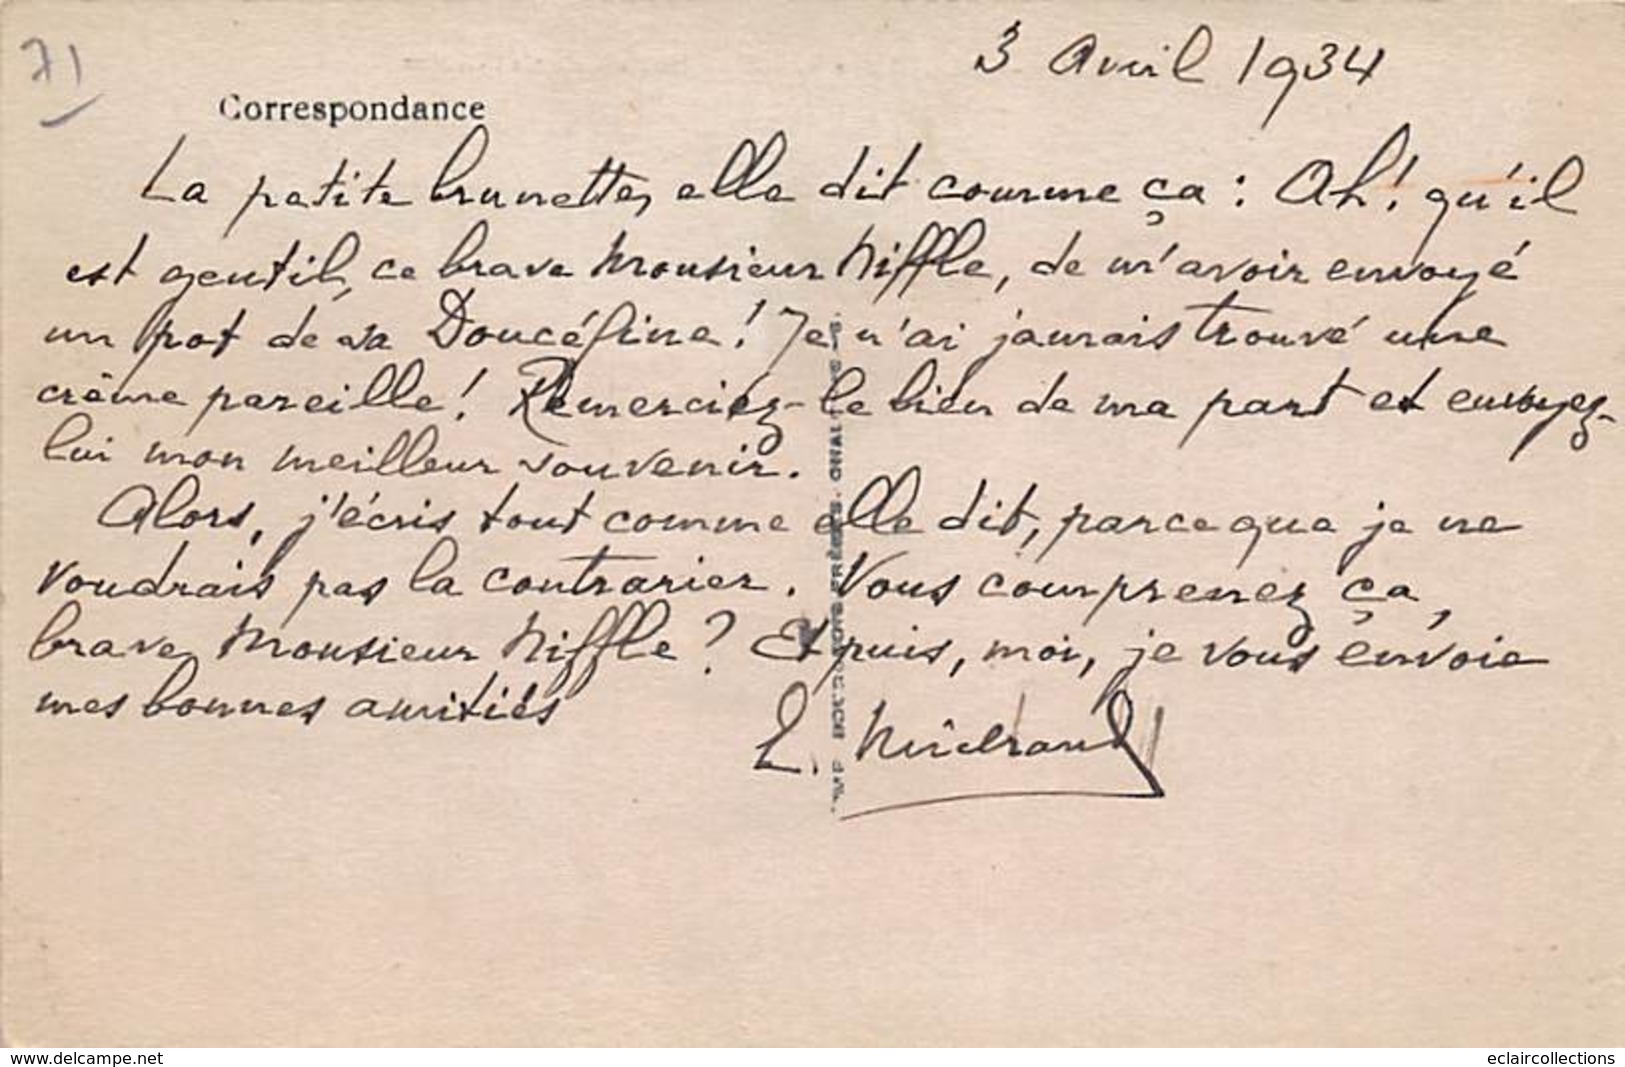 71
3 Avril 1934
Correspondance
La petite brunette, elle dit comme ça : Ah! qu'il
est gentil, ce brave Monsieur Niffle, de m'avoir envoyé
un pot de sa Doucéfine! Je n'ai jamais trouvé une
crème pareille! Remerciez-le bien de ma part et envoyez-
lui mon meilleur souvenir.
Alors, j'écris tout comme elle dit, parce que je ne
voudrais pas la contrarier. Vous comprenez ça,
brave Monsieur Niffle? Et puis, moi, je vous envoie
mes bonnes amitiés
www.delcampe.net
eclaircollections